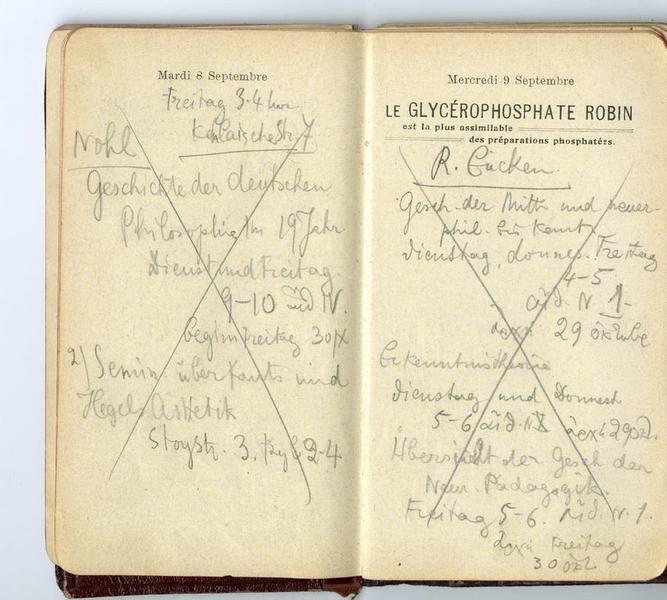 Mardi 8 Septembre
Freitag 3-4 Uhr
7
Nohl
Geschichte der deutschen
Philosophie im 19 Jahr
Dienst und Freitag
9-10 IV.
begin Freitag 30/X
2) Semin. über Kants und
Hegels Ästhetik
Stoystr. 3. 2-4
Mercredi 9 Septembre
LE GLYCÉROPHOSPHATE ROBIN
est la plus assimilable
des préparations phosphatées.
R. Eucken.
Gesch. der Mitt- und neuer-
phil. bis Kant.
Dienstag, Donners. Freitag
4-5
N 1-
29
Erkenntnistheorie
Dienstag und Donnerst
5-6
Übersicht der Gesch der
Neur. Pädagogik.
Freitag 5-6. N. 1.
Freitag
30